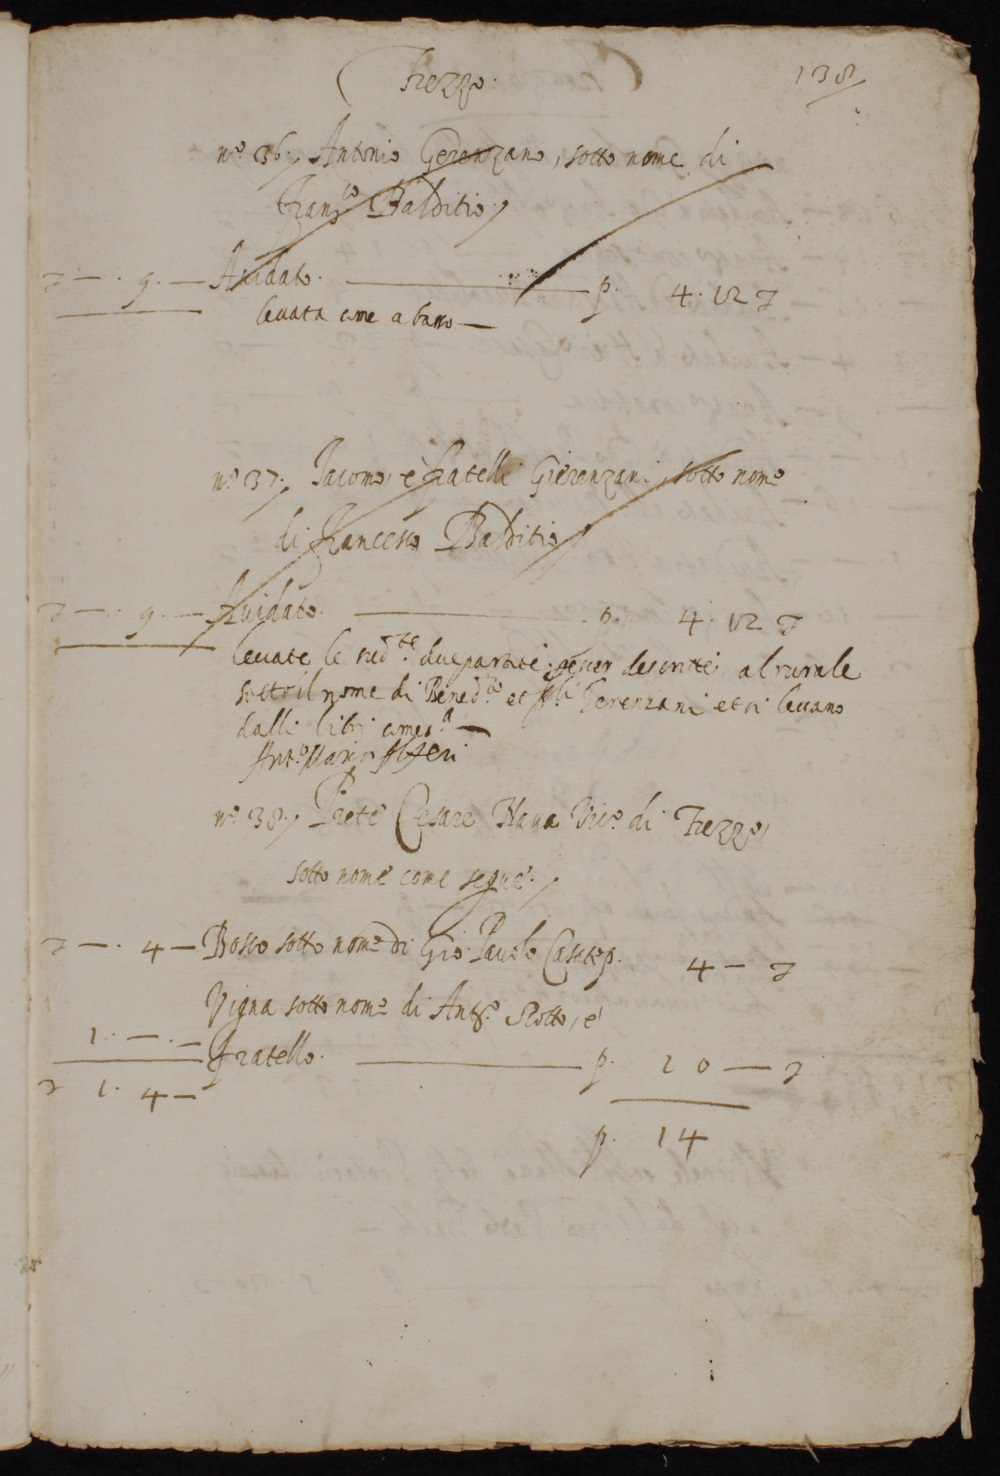 Trezzo.
138
n.° 36, Antonio Gerenzano, sotto nome di
Franc.co Balditio,
9. — Auidato. — p. 4. 12
leuata come a basso —
n.° 37, Iacomo, e fratelli Gierenzani, sotto nome
di Francesco Balditio,
9. — Auidato. — p. 4. 12
leuate le sud.te due partite per esser descritte al rurale
sotto il nome di Bened.to et fr.lli Gerenzani et si leuano
dalli libri
Ant.o Maria Alferi
n.° 38, Prete Cesare Haua Vic.o di Trezzo,
sotto nome come segue.
4 — Bosco sotto nome di Gio. Pauolo p. 4 —
Vigna sotto nome di Ant.o Rotto, e
1. — . — fratello. — p. 10 —
1. 4 —
p. 14